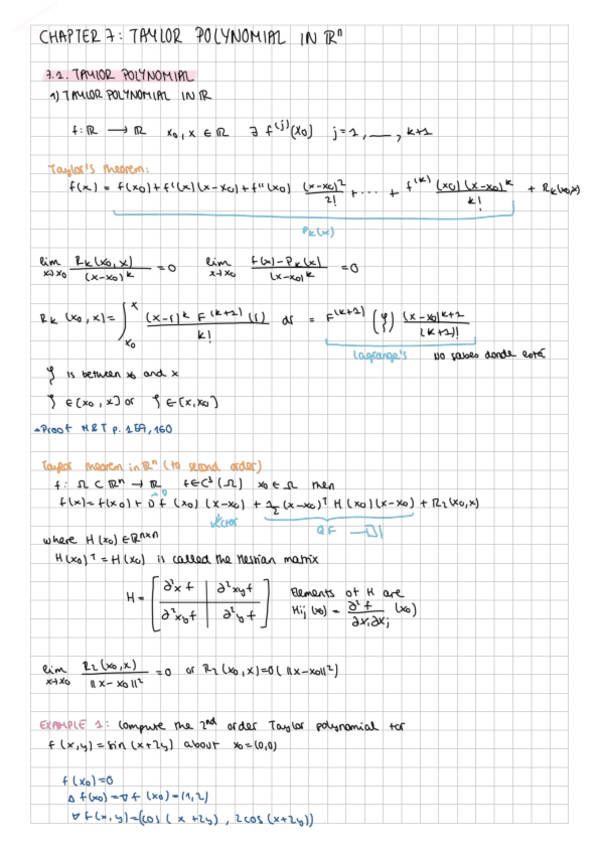 CHAPTER 7: TAYLOR POLYNOMIAL IN ℝⁿ
7.1. TAYLOR POLYNOMIAL
1) TAYLOR POLYNOMIAL IN ℝ
f: ℝ → ℝ x₀, x ∈ ℝ ∃ f^(j)(x₀) j = 1, __, k+1
Taylor's theorem:
f(x) = f(x₀) + f'(x)(x-x₀) + f''(x₀) (x-x₀)²/2! + ... + f^(k)(x₀)(x-x₀)^k/k! + R_k(x₀,x)
P_k(x)
lim x→x₀ R_k(x₀,x)/(x-x₀)^k = 0 lim x→x₀ f(x)-P_k(x)/(x-x₀)^k = 0
R_k (x₀,x) = ∫_{x₀}^{x} (x-s)^k F^(k+1)(s)/k! ds = F^(k+1) (ξ) (x-x₀)^{k+1}/(k+1)!
Lagrange's No sabes donde está
ξ is between x₀ and x
ξ ∈ [x₀, x] or ξ ∈ [x, x₀]
Proof M&T p. 159, 160
Taylor theorem in ℝⁿ (to second order)
f: Ω ⊂ ℝⁿ → ℝ f ∈ C³(Ω) x₀ ∈ Ω then
f(x) = f(x₀) + Df(x₀)(x-x₀) + 1/2 (x-x₀)ᵀ H(x₀)(x-x₀) + R₂(x₀,x)
vector QF
where H(x₀) ∈ ℝⁿˣⁿ
H(x₀)ᵀ = H(x₀) is called the Hessian matrix
H = [ ∂²x f | ∂²xy f ; ∂²xy f | ∂²y f ] Elements of H are
Hij (x₀) = ∂²f/∂xᵢ∂xⱼ (x₀)
lim x→x₀ R₂(x₀,x)/||x-x₀||² = 0 or R₂(x₀,x) = O(||x-x₀||²)
EXAMPLE 1: Compute the 2nd order Taylor polynomial for
f(x,y) = sin (x+2y) about x₀ = (0,0)
f(x₀) = 0
Δ f(x₀) = ∇ f (x₀) = (1,2)
∇ f(x,y) = (cos (x+2y), 2cos (x+2y))